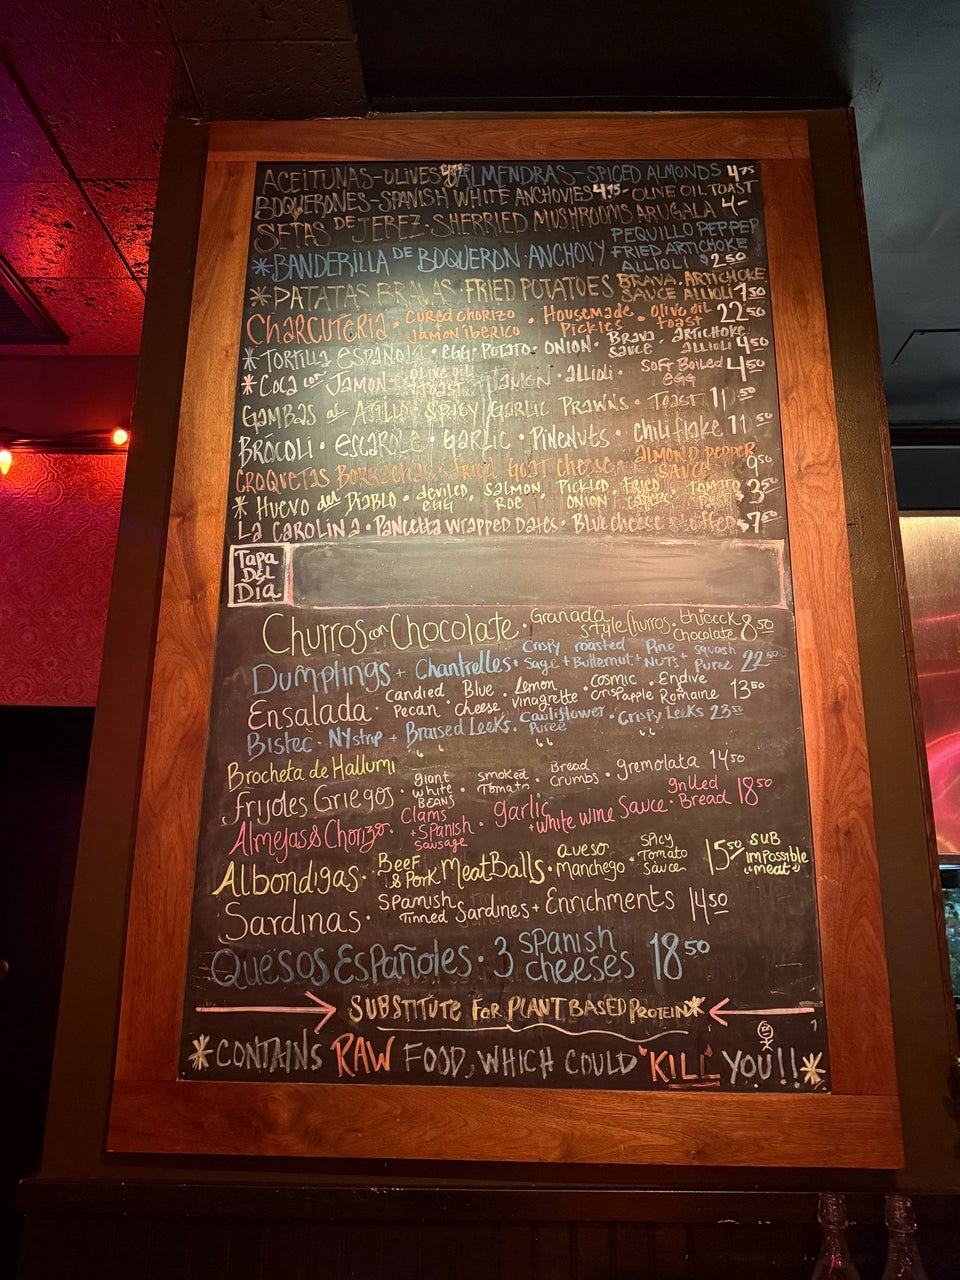 ACEITUNAS-OLIVES 4.75 ALMENDRAS-SPICED ALMONDS 4.75
BOQUERONES-SPANISH WHITE ANCHOVIES 4.75 - OLIVE OIL TOAST
SETAS DE JEREZ - SHERRIED MUSHROOMS ARUGALA 4-
*BANDERILLA DE BOQUERON · ANCHOVY + PEQUILLO PEPPER FRIED ARTICHOKE ALLIOLI $2.50
*PATATAS BRAVAS · FRIED POTATOES BRAVA SAUCE · ARTICHOKE ALLIOLI 7.50
CHARCUTERIA · CURED CHORIZO JAMON IBERICO · HOUSEMADE PICKLES · OLIVE OIL TOAST 22.50
*TORTILLA ESPAÑOLA · EGG · POTATO · ONION · BRAVA SAUCE · ARTICHOKE ALLIOLI 4.50
*COCA con JAMON · OLIVE OIL TOAST · JAMON · ALLIOLI · SOFT BOILED EGG 4.50
GAMBAS al AJILLO · SPICY GARLIC PRAWNS · TOAST
BRÓCOLI · ESCAROLE · GARLIC · PINENUTS · CHILI FLAKE 11.50
CROQUETAS BORRACHAS · FRIED GOAT CHEESE · ALMOND PEPPER SAUCE 9.50
*HUEVO del DIABLO · DEVILED EGG · SALMON ROE · PICKLED ONION · FRIED · TOMATO $3.50
LA CAROLINA · PANCETTA WRAPPED DATES · BLUE CHEESE STUFFED $7.50
TAPA DEL DÍA
Churros con Chocolate · Granada style Churros · thiccck chocolate 8.50
Dumplings + Chantrelles · Crispy Sage + roasted Butternut + Pine NUTS + squash Puree 22.50
Ensalada · Candied Pecan · Blue cheese · Lemon vinagrette · cosmic crisp apple · Endive Romaine 13.50
Bistec · NY strip + Braised Leeks · Cauliflower Puree · Crispy Leeks 23.50
Brocheta de Hallumi " " " " " "
Frijoles Griegos · giant white BEANS · smoked Tomato · Bread Crumbs · gremolata 14.50
Almejas & Chorizo · Clams + Spanish sausage · garlic + white wine Sauce · grilled Bread 18.50
Albondigas · Beef & Pork Meat Balls · aveso manchego · Spicy Tomato Sauce 15.50 SUB imPossible "meat"
Sardinas · Spanish Tinned Sardines + Enrichments 14.50
Quesos Españoles · 3 spanish cheeses 18.50
SUBSTITUTE FOR PLANT BASED PROTEIN*
*CONTAINS RAW FOOD, WHICH COULD "KILL" YOU!!*